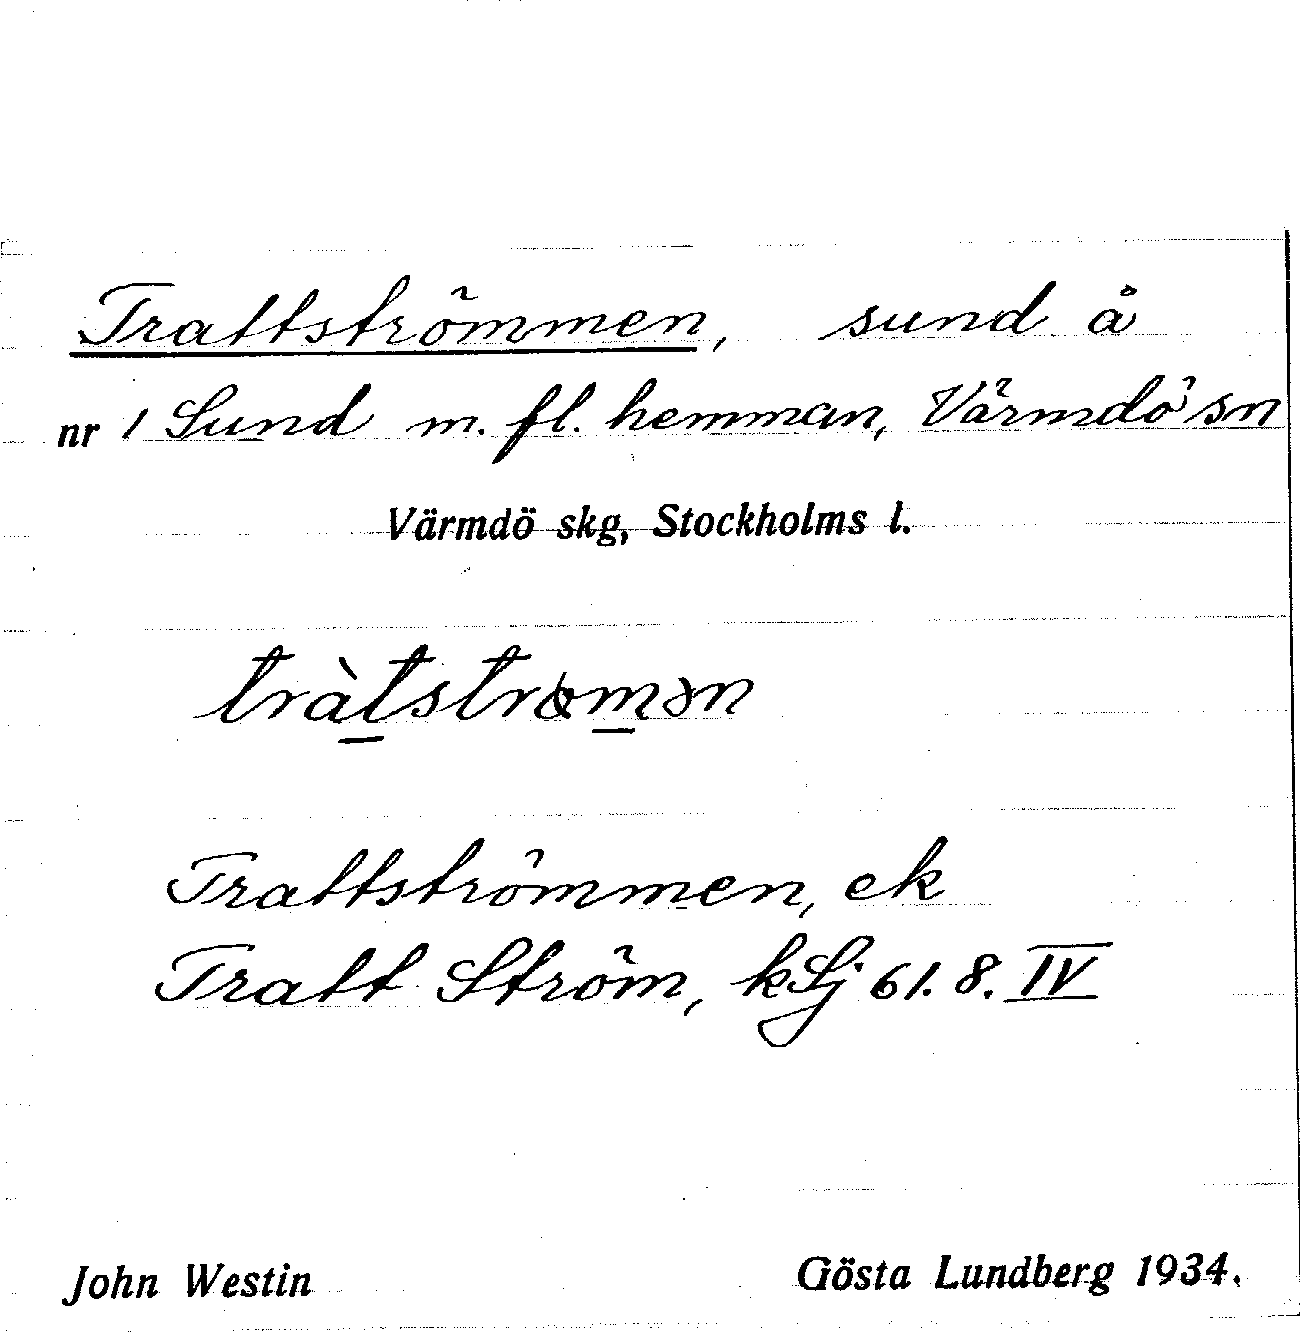 Trattströmmen, sund å
nr 1 Sund m. fl. hemman, Värmdö sn
Värmdö skg, Stockholms l.
tràtstrømən
Trattströmmen, ek
Tratt Ström, kSj 61. 8. IV
John Westin Gösta Lundberg 1934.